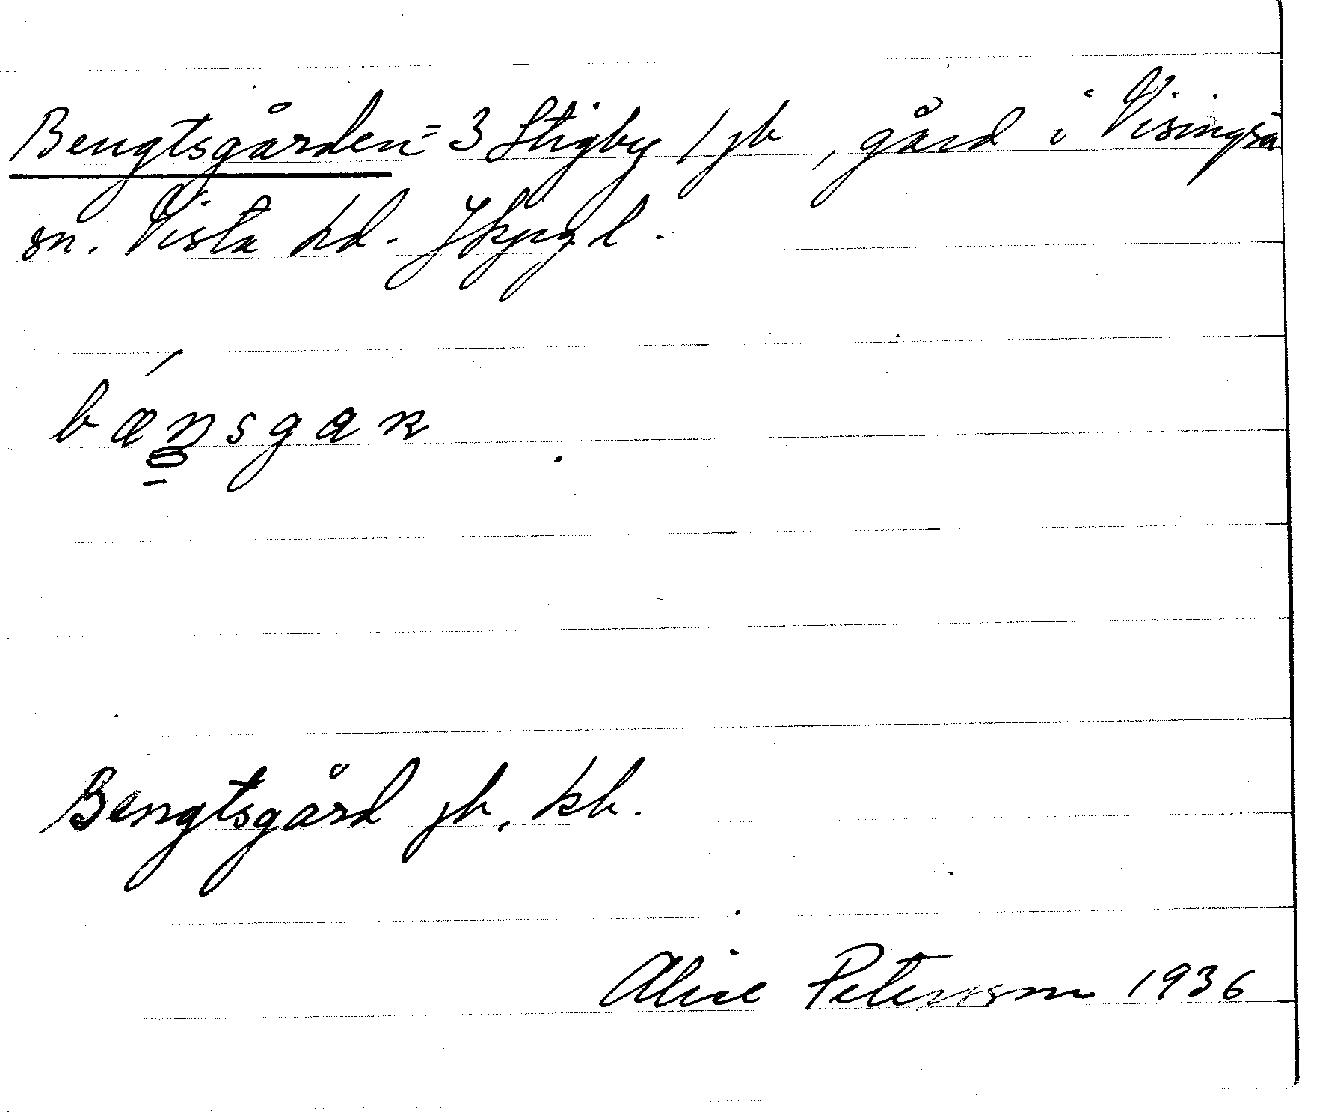 Bengtsgården = 3 Stigby 1 jb, gård i Visingsö
sn. Vista hd. Jkpgs l.
bænsgan
Bengtsgård jb, kb.
Alice Petersson 1936